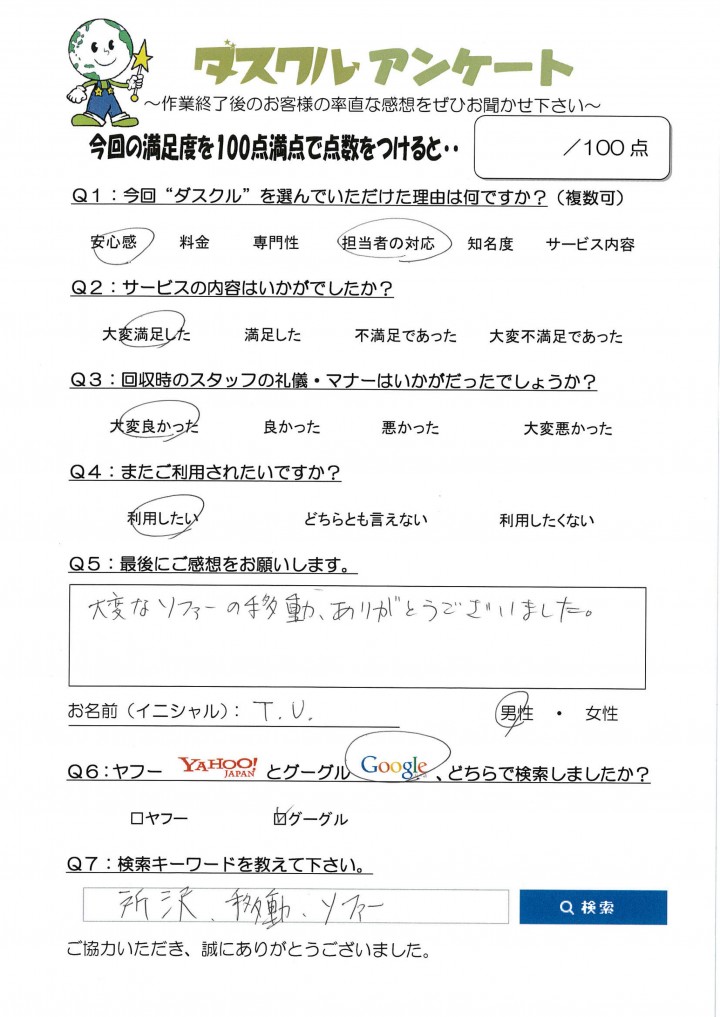 ダスクルアンケート
～作業終了後のお客様の率直な感想をぜひお聞かせ下さい～
今回の満足度を100点満点で点数をつけると・・
／100 点
Ｑ１：今回“ダスクル”を選んでいただけた理由は何ですか？（複数可）
安心感 料金 専門性 担当者の対応 知名度 サービス内容
Ｑ２：サービスの内容はいかがでしたか？
大変満足した 満足した 不満足であった 大変不満足であった
Ｑ３：回収時のスタッフの礼儀・マナーはいかがだったでしょうか？
大変良かった 良かった 悪かった 大変悪かった
Ｑ４：またご利用されたいですか？
利用したい どちらとも言えない 利用したくない
Ｑ５：最後にご感想をお願いします。
大変なソファーの移動、ありがとうございました。
お名前（イニシャル）： T.U. 男性 ・ 女性
Ｑ６：ヤフー YAHOO! JAPAN とグーグル Google 、どちらで検索しましたか？
□ヤフー ☑グーグル
Ｑ７：検索キーワードを教えて下さい。
所沢、移動、ソファー 検索
ご協力いただき、誠にありがとうございました。